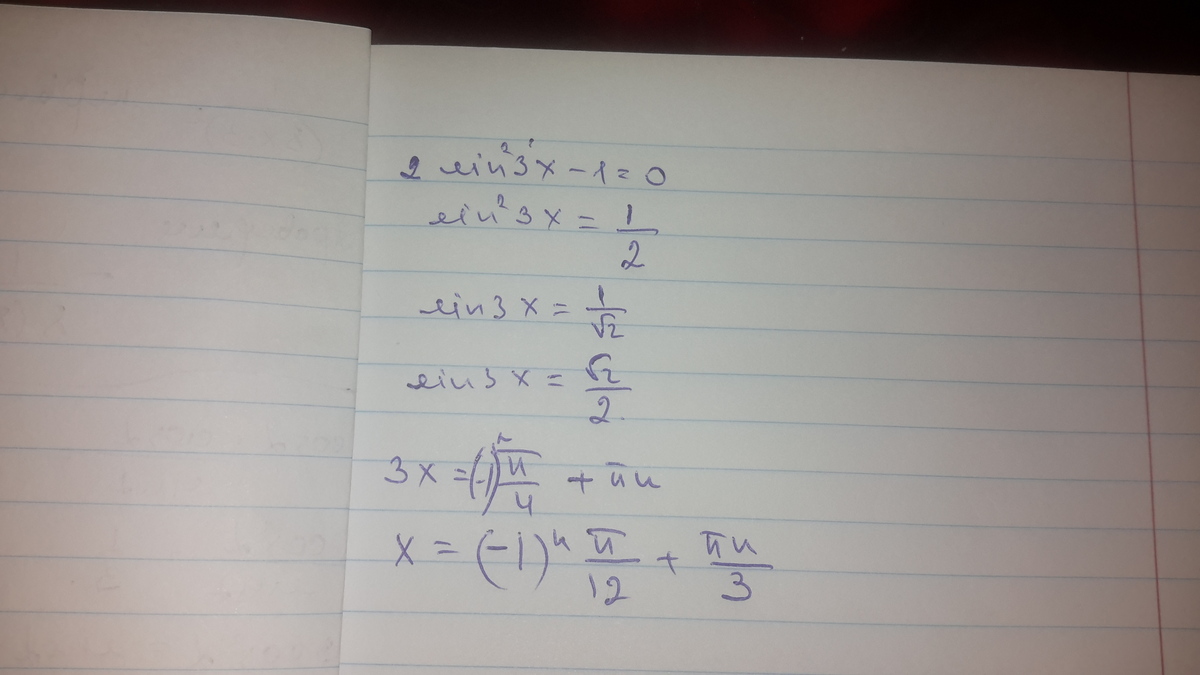 2 sin²3x − 1 = 0
sin²3x = 1/2
sin3x = 1/√2
sin3x = √2/2
3x = (-1)ⁿ π/4 + πn
x = (-1)ⁿ π/12 + πn/3